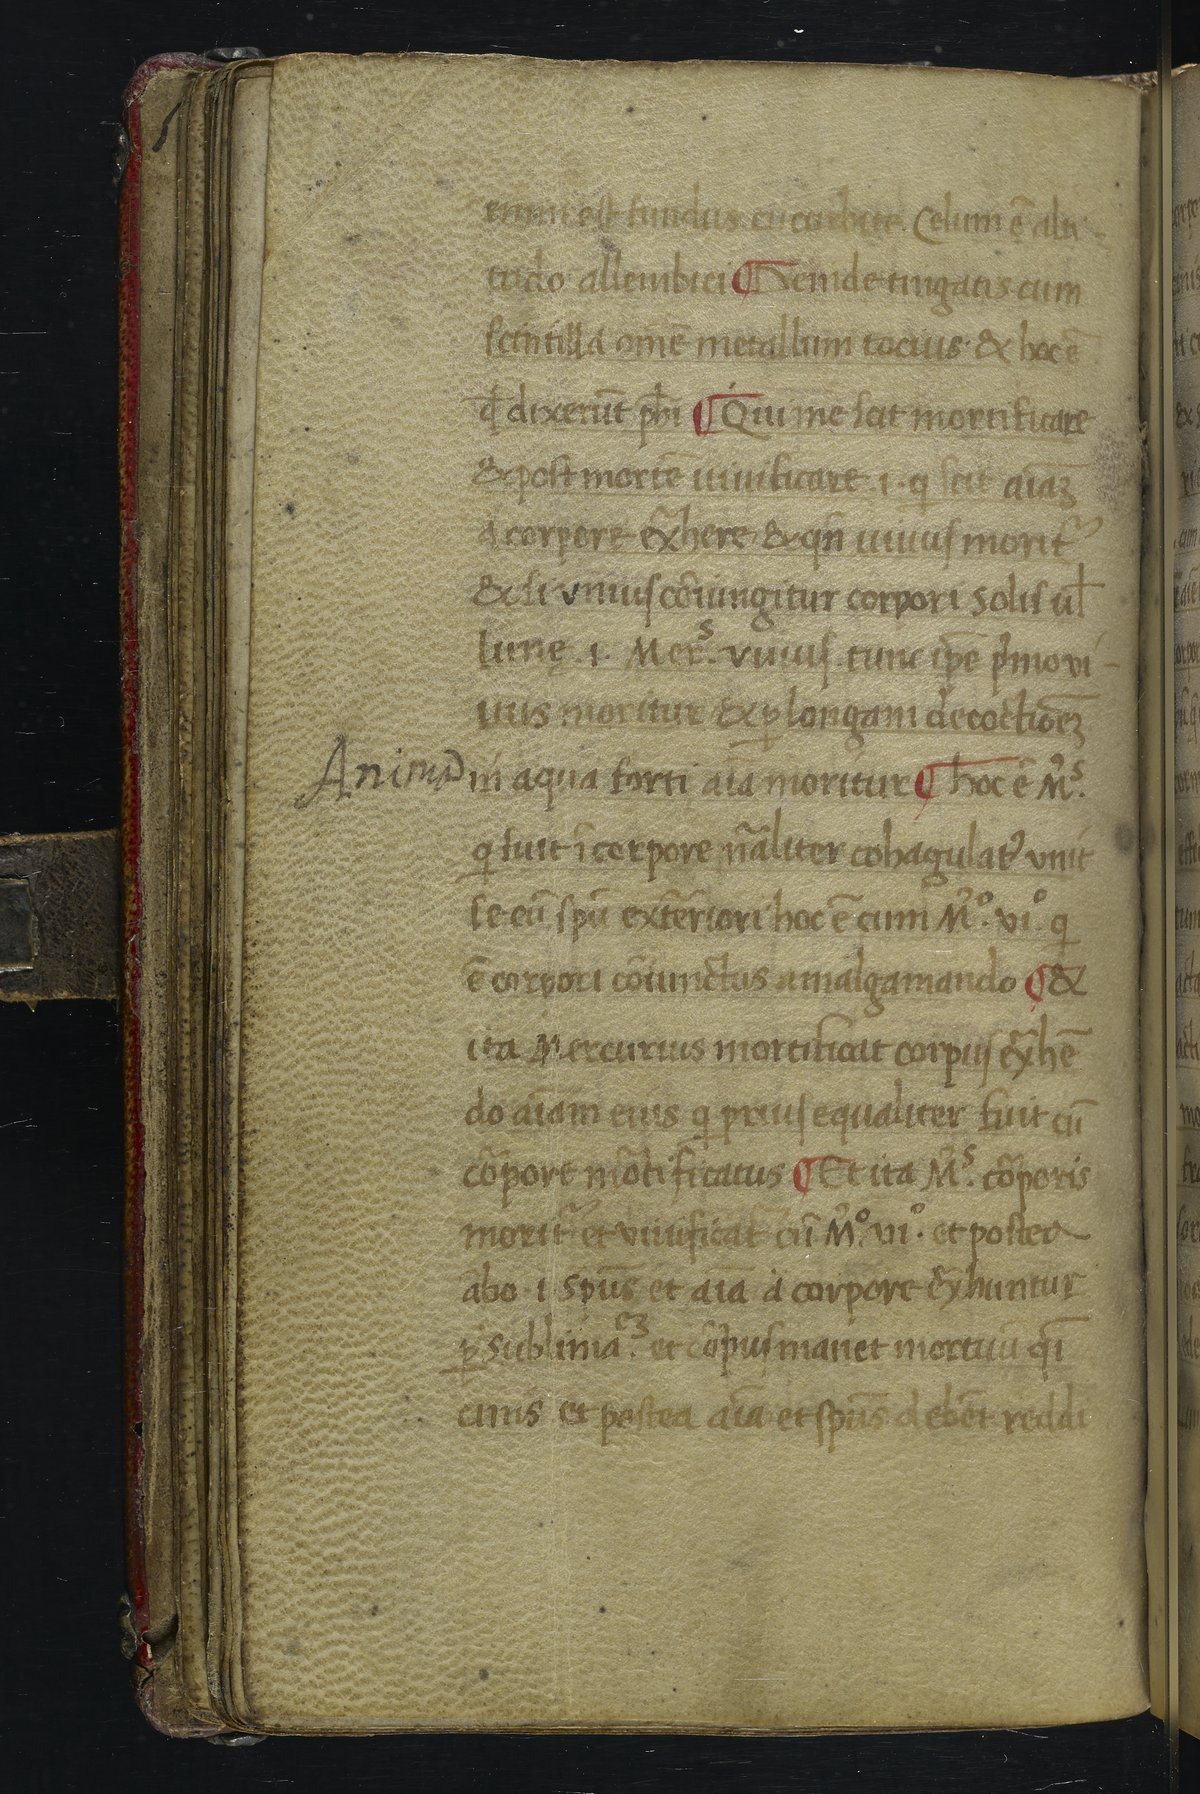 enim est fundus cucurbite. Celum ē alti-
tudo allembici ¶ Deinde tingatis cum
scintilla omē metallum tocius. & hoc ē
ꝙ dixerūt phi ¶ Qui me scit mortificare
& post mortē uiuificare .i. q scit aiaꝫ
a corpore ex̄here & qn̄ uiuus morit᷑
& si vnius cōiungitur corpori Solis ul̄
lunę .i. Merˢ. viuus. tunc ip̄e p̄mo vi-
uus moritur & ꝑ longam decoctioēꝫ
Anima
in aqua forti aīa moritur ¶ hoc ē M̄ˢ.
q fuit ī corpore n̄aliter cohagulat᷑ vnit
se cū spū exteriori hoc ē cum M̄º. viº. q
ē corpori cōiunctus amalgamando ¶ &
ita Mercurius mortificat corpus ex̄hē
do aīam eius q prius equaliter fuit cū
cōrpore mōrtificatus ¶ Et ita M̄ˢ. cōrporis
morit᷑ et viuificat᷑ cū M̄º. viº. et postea
abo .i. Spūs et aīa a corpore ex̄huntur
ꝑ sublimaᶜꝫ. et cōrpus manet mortuū qi
cinis et postea aīa et spūs debēt reddi